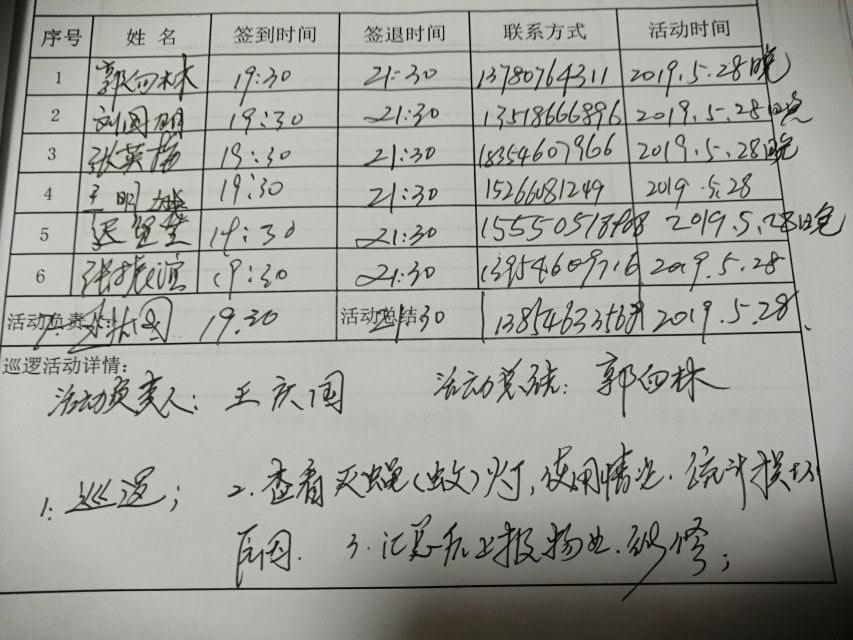 序号 姓名 签到时间 签退时间 联系方式 活动时间
1 郭向林 19:30 21:30 13780764311 2019.5.28晚
2 刘国明 19:30 21:30 13518666896 2019.5.28晚
3 张英 19:30 21:30 18354607966 2019.5.28晚
4 王明 19:30 21:30 15266081249 2019.5.28
5 19:30 21:30 2019.5.28晚
6 张振 19:30 21:30 13954609716 2019.5.28
活动负责人: 19.30 活动总结: 21:30 2019.5.28.
巡逻活动详情:
活动负责人: 王庆国 活动总结: 郭向林
1: 巡逻; 2. 查看灭蝇(蚊)灯,使用情况.统计损坏
原因. 3.汇总后上报物业.维修;